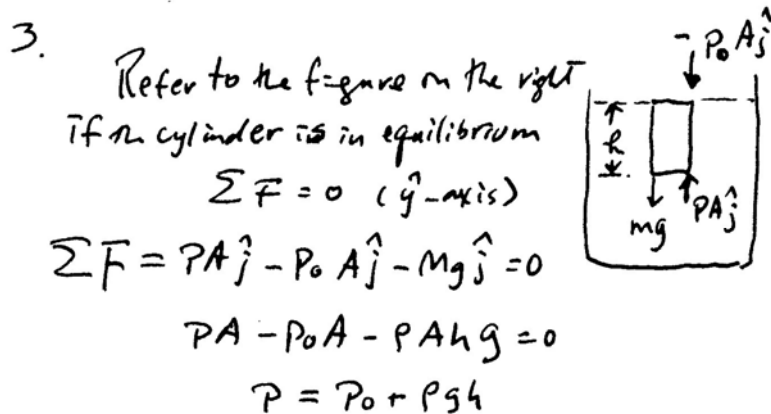 3.
Refer to the figure on the right
if the cylinder is in equilibrium
Σ F = 0 (ŷ-axis)
Σ F = PA ĵ - P₀ A ĵ - Mg ĵ = 0
PA - P₀A - ρAhg = 0
P = P₀ + ρgh
- P₀ A ĵ
h
mg
PA ĵ